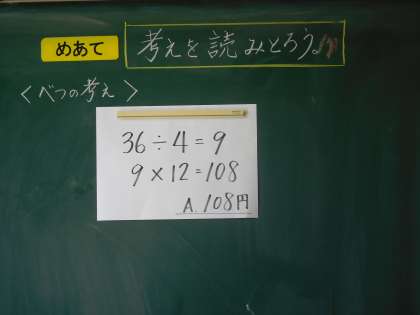 めあて 考えを読みとろう。
<べつの考え>
36÷4=9
9×12=108
A.108円